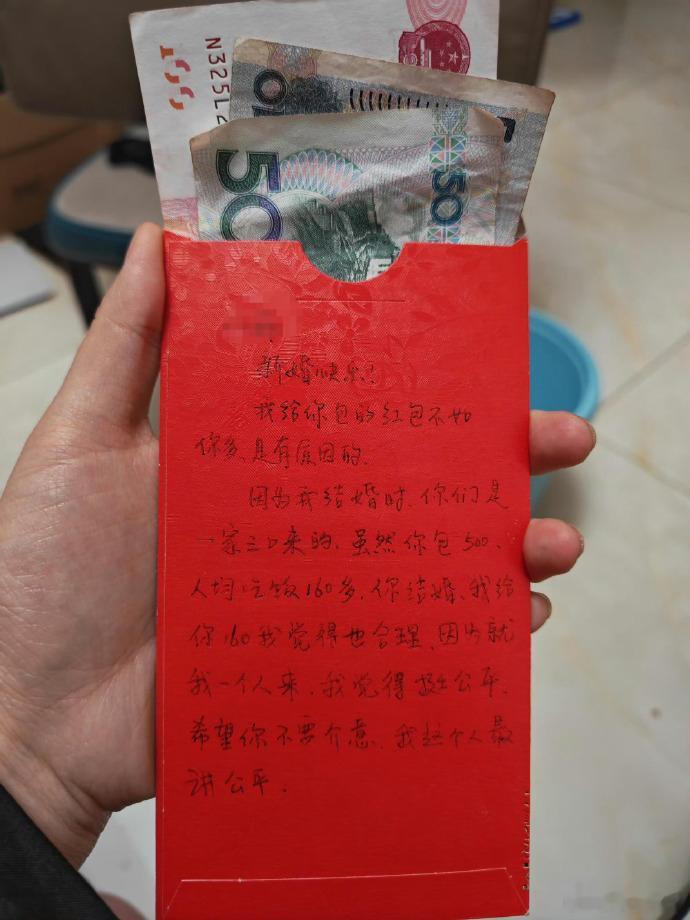 N325L
50
50
新婚快乐!
我给你包的红包不如
你多,是有原因的.
因为我结婚时,你们是
一家三口来的.虽然你包500、
人均吃饭160多,你结婚、我给
你160我觉得也合理,因为就
我一个人来,我觉得挺公平.
希望你不要介意,我这个人最
讲公平.